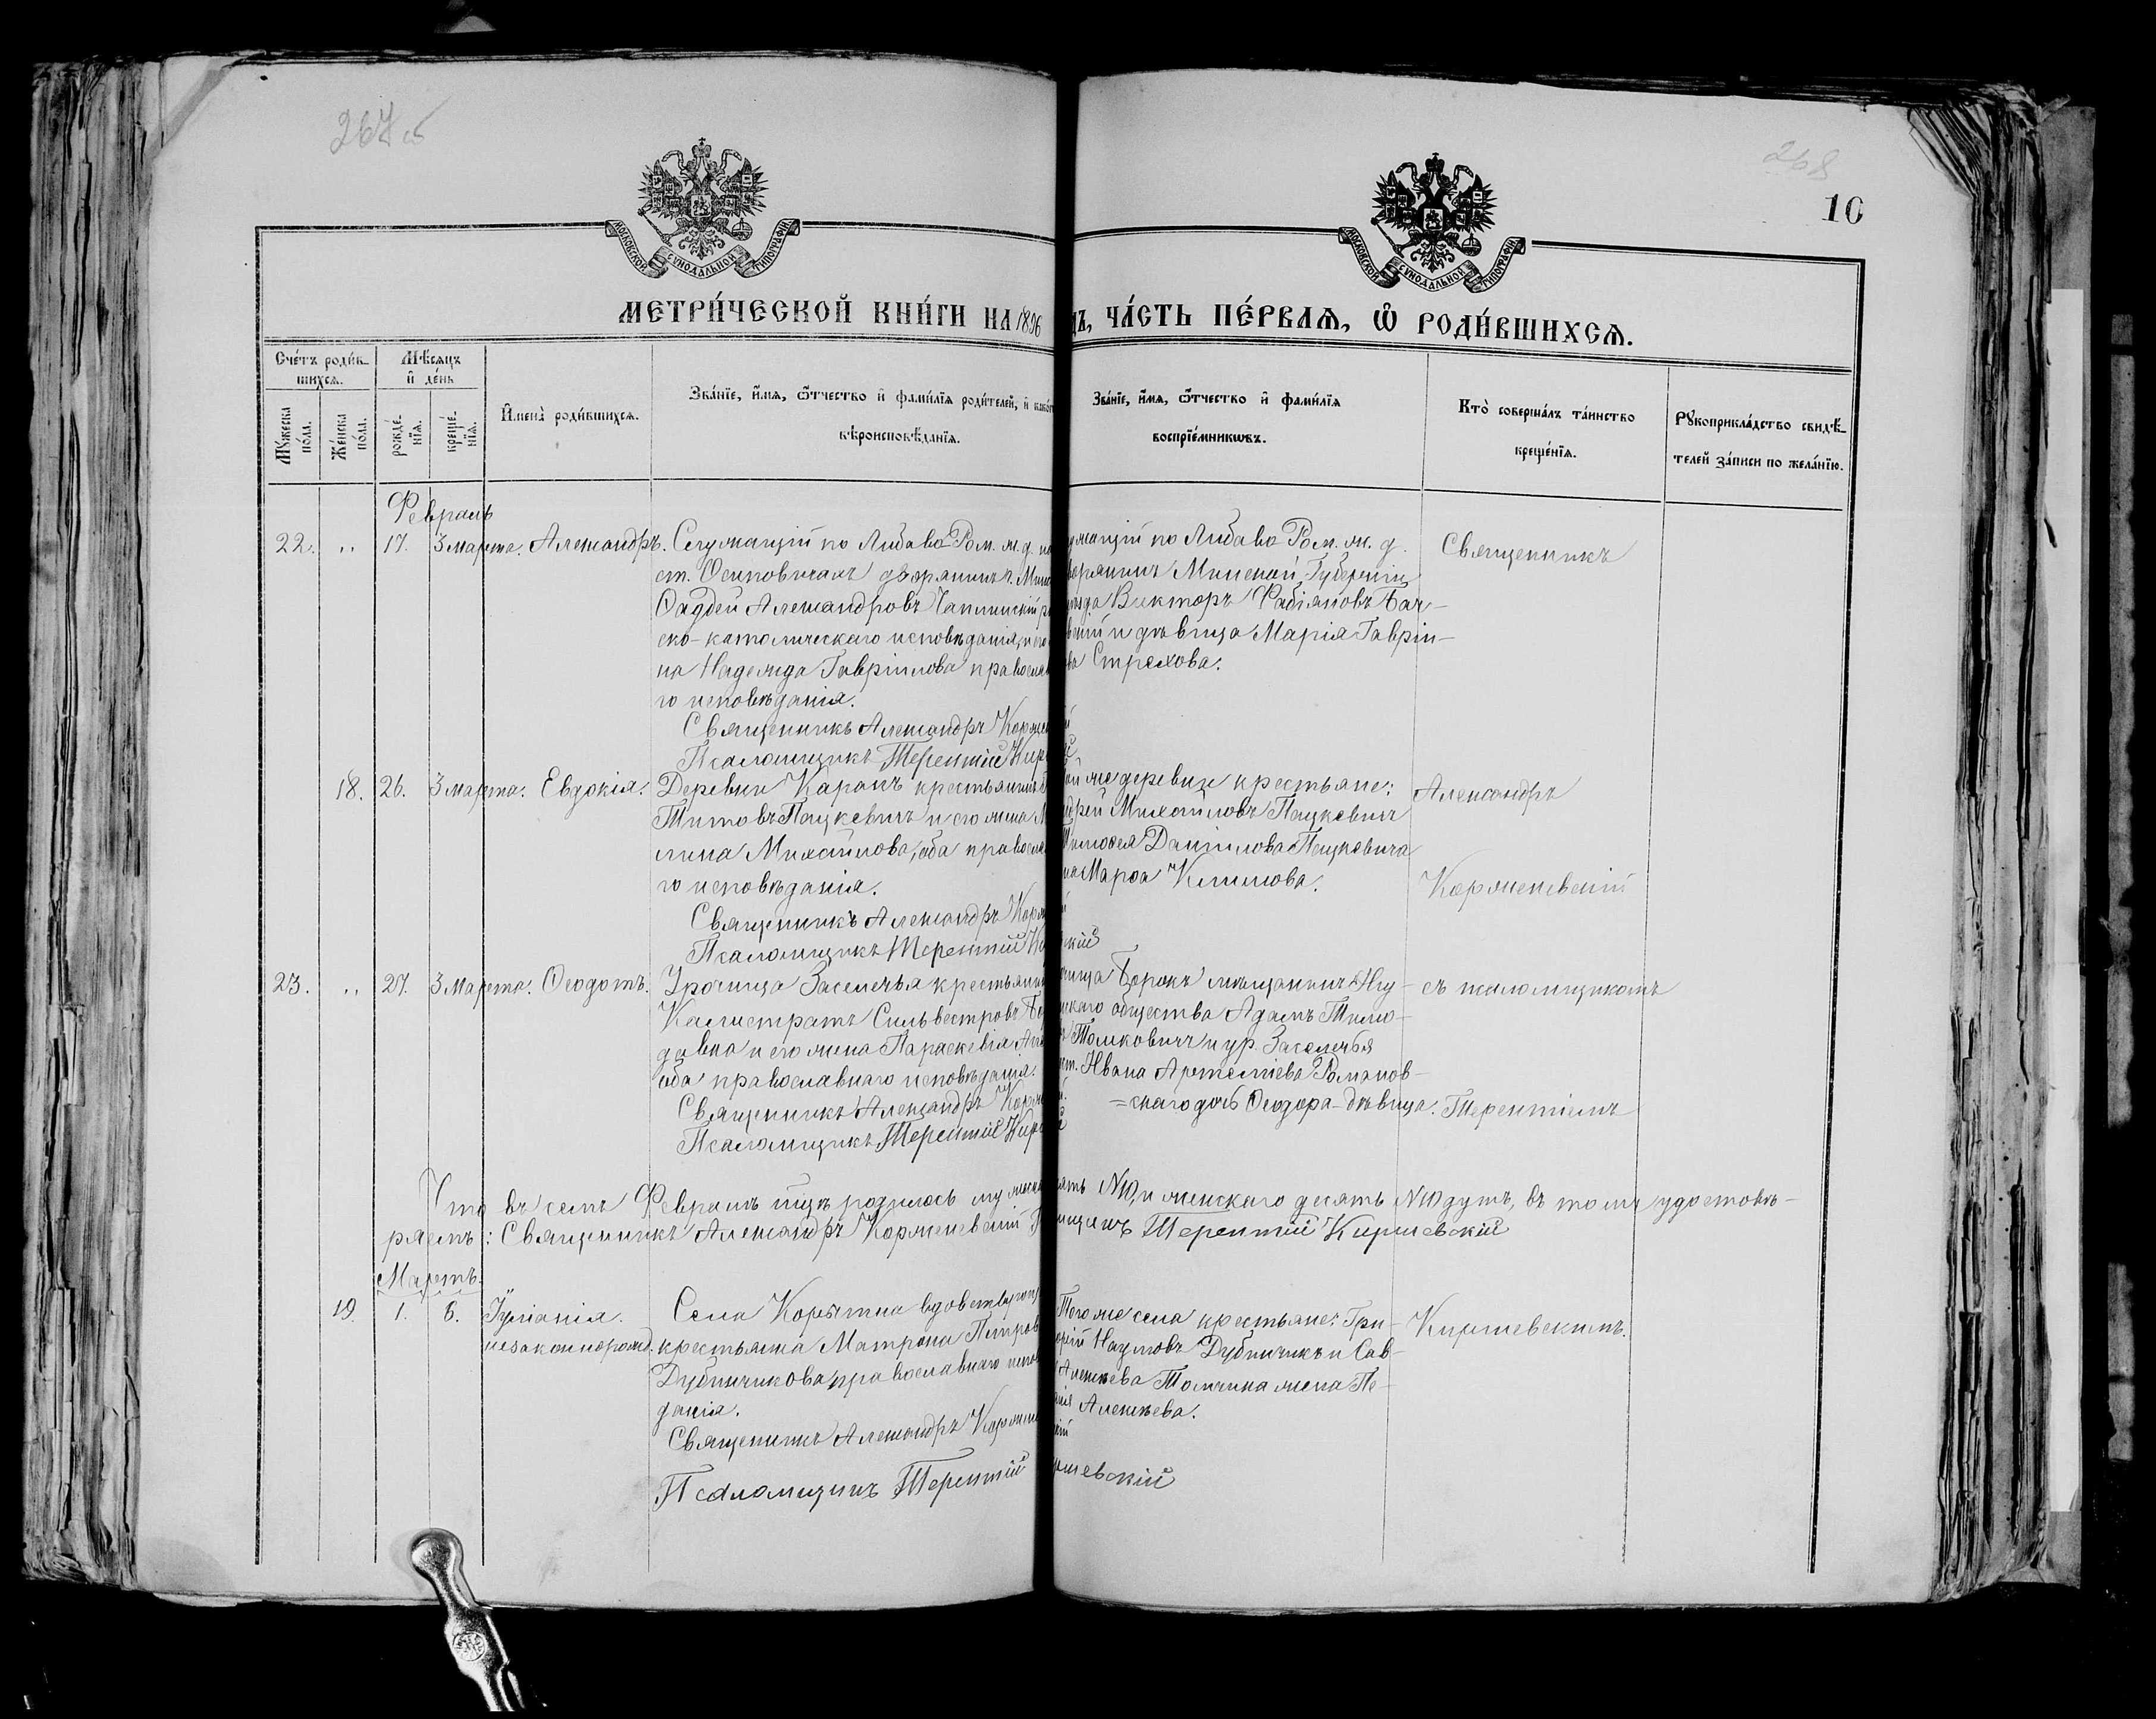 267 об
268
10
МОСКОВСКОЙ СУНОДАЛЬНОЙ ТИПОГРАФІИ
МОСКОВСКОЙ СУНОДАЛЬНОЙ ТИПОГРАФІИ
МЕТРИ́ЧЕСКОЙ КНИ́ГИ НА 1896
ДЪ, ЧА́СТЬ ПЕ́РВАЯ, Ѿ РОДИ́ВШИХСЯ.
Счетъ роди́в-
шихся.
Мѣсяцъ
и де́нь
Му́жеска по́ла.
Же́нска по́ла.
рожде́-нія.
креще́-нія.
Имена̀ роди́вшихся.
Зва́ніе, и́мя, ѻ҆́тчество и фами́лія роди́телей, и како́г
вѣроисповѣ́данія.
Зва́ніе, и́мя, ѻ҆́тчество и фами́лія
воспріе́мниковъ.
Кто̀ соверша́лъ та́инство
креще́нія.
Рꙋкоприкла́дство свидѣ́-
телей за́писи по жела́нію.
Февраль
22. „ 17. 3 марта. Александръ.
Служащій по Либаво Ром. ж. д. на
ст. Осиповичахъ дворянинъ Мин
Фаддей Александровъ Чаплинскій р
ско-католическаго исповѣданія, и его
на Надежда Гавріилова православ
го исповѣданія.
Священникъ Александръ Корже
Псаломщикъ Терентій Кирш
жащій по Либаво Ром. ж. д.
ворянинъ Минской Губерніи
ѣзда Викторъ Фабіановъ Бач-
вскій и дѣвица Марія Гавріи-
ва Стрехова.
Священникъ
18. 26. 3 марта. Евдокія.
Деревни Каранъ крестьянинъ
Титовъ Пацкевичъ и его жена М
лина Михайлова, оба православ
го исповѣданія.
Священникъ Александръ Корж
Псаломщикъ Терентій Ки
ой же деревни крестьяне:
дрей Михайловъ Пацкевичъ
Тимофея Даніилова Пацкевича
на Марфа Климова.
Александръ
Корженевскій
23. „ 27. 3 Марта. Ѳеодотъ.
Урочища Заселечья крестьянинъ
Калистратъ Сильвестровъ
и его жена Параскевія
оба православнаго исповѣданія.
Священникъ Александръ Корже
Псаломщикъ Терентій Кирш
чища Борокъ мѣщанинъ Игу-
нскаго общества Адамъ Тимо-
Томковичъ и ур. Заселечья
кст. Ивана Артеміева Романов-
=скаго дочь Ѳеодора-дѣвица.
съ псаломщикомъ
Терентіемъ
Что въ семъ Февралѣ мцѣ родилось мужеска
ять №10, и женскаго десять №10 душъ, въ томъ удостовѣ-
ряемъ: Священникъ Александръ Корженевскій
мщикъ Терентій Киршевскій
Мартъ.
19. 1. 6. Іуліанія.
незаконнорожд.
Села Корытна вдовствующ
крестьянка Матрона Петров
Дубинчикова, православнаго испов
данія.
Священникъ Александръ Коржен
Псаломщикъ Терентій
Того же села крестьяне: Гри-
орій Наумовъ Дубинчикъ и Сав-
Алексѣева Томчина жена Пе-
Алексѣева.
шевскій
Киршевскимъ.